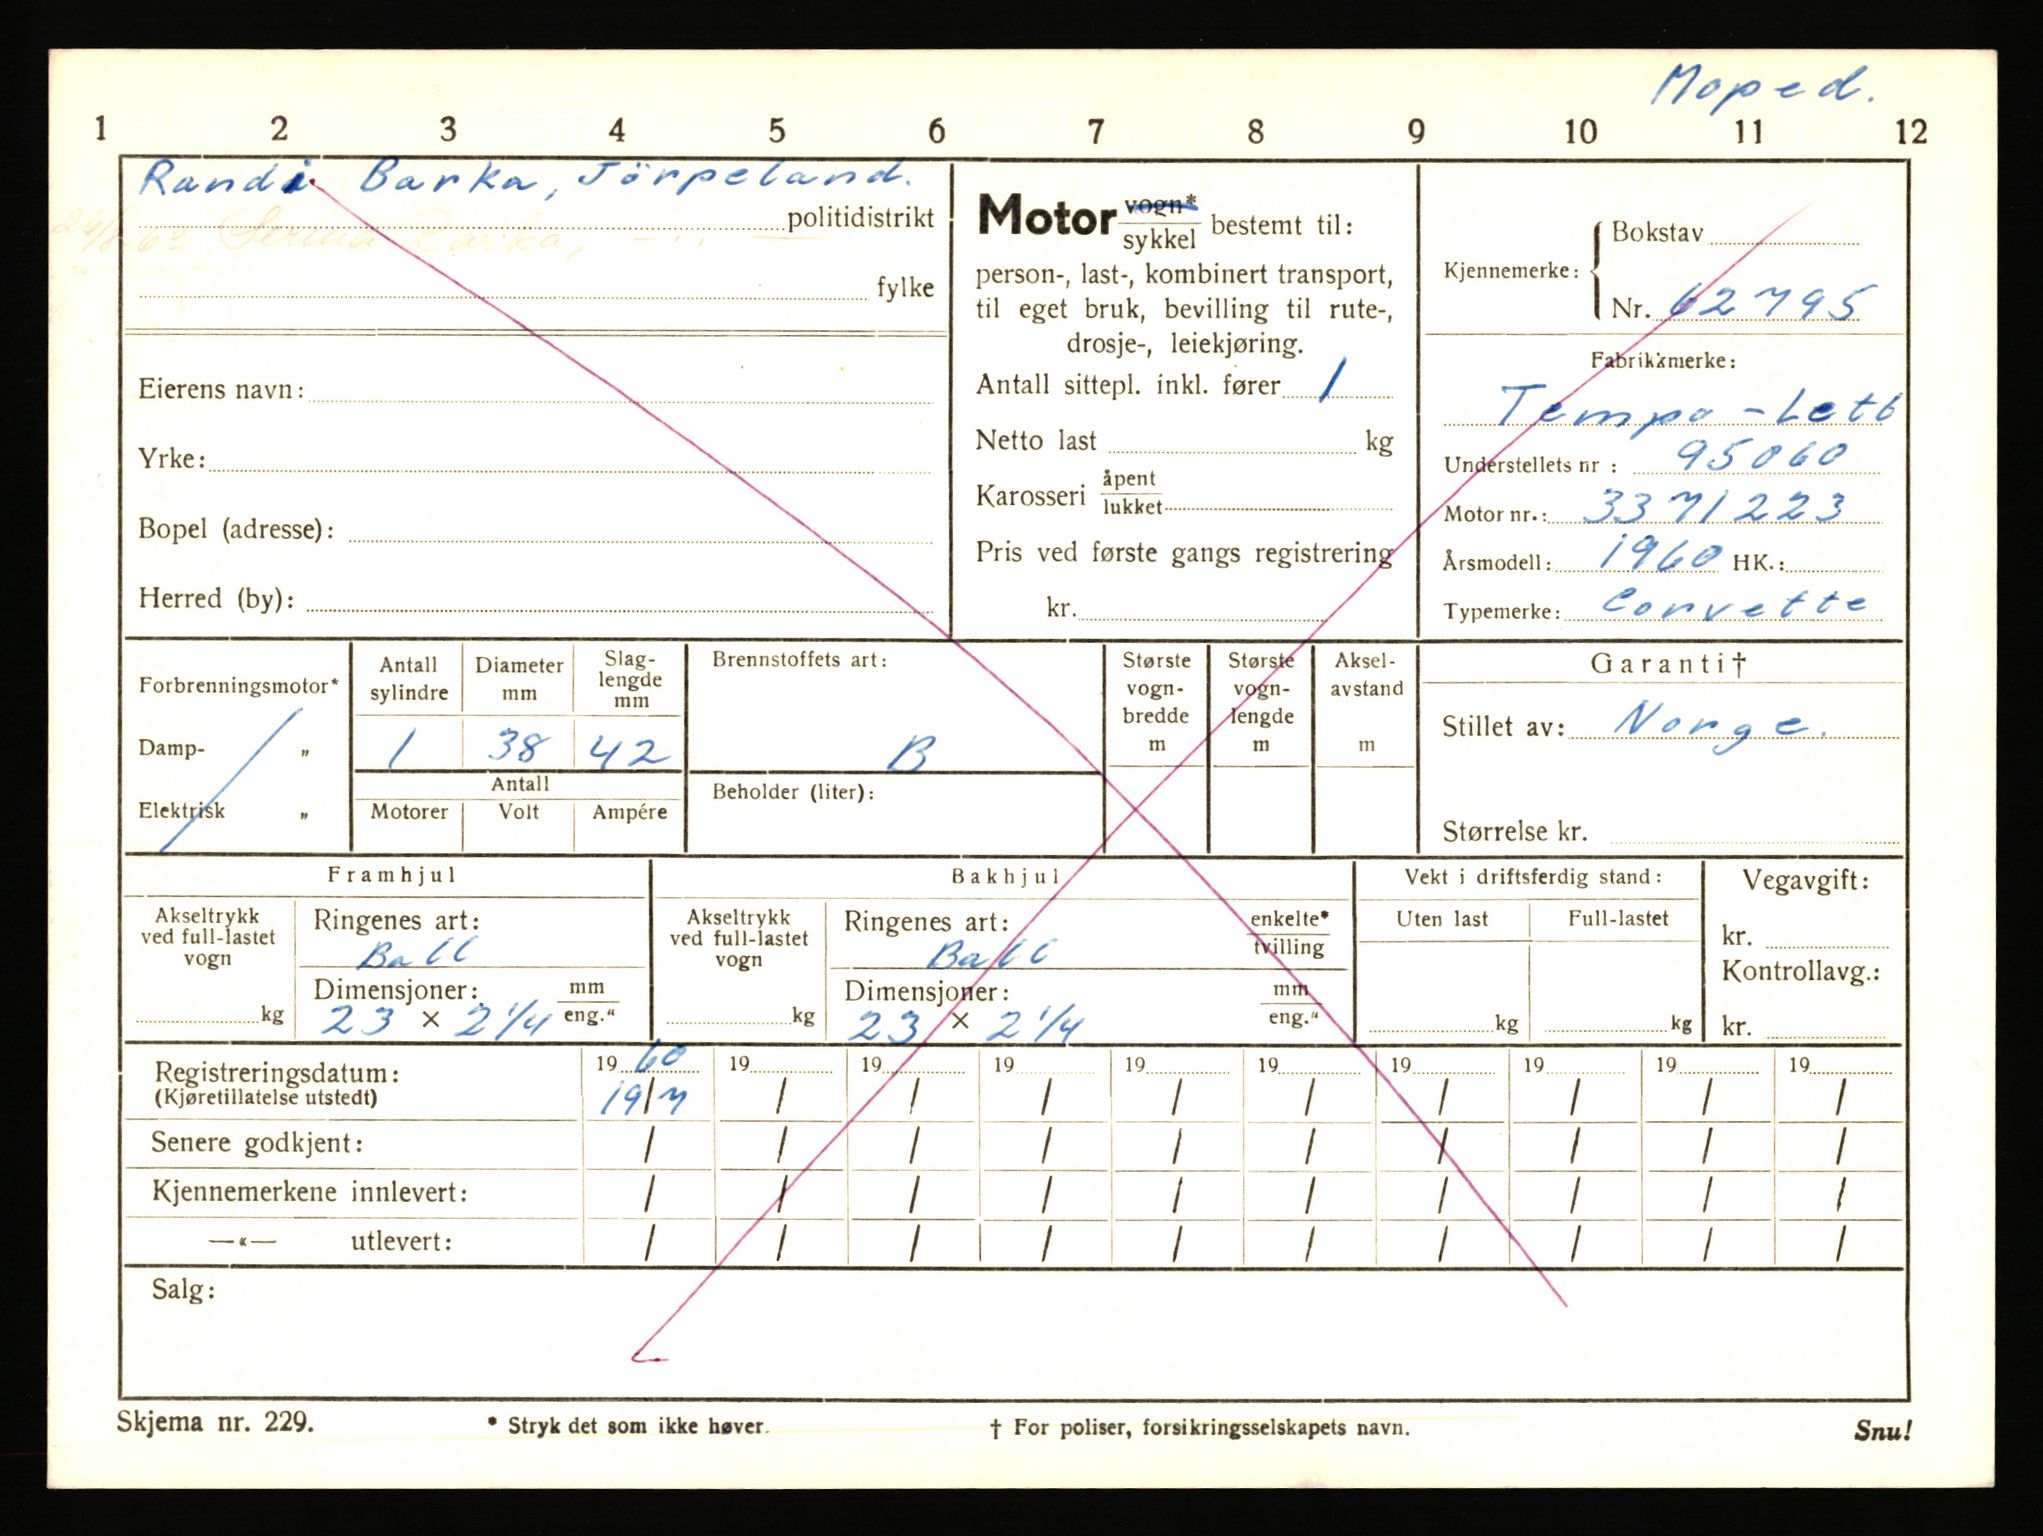 Moped.
1 2 3 4 5 6 7 8 9 10 11 12
Randi Barka, Jörpeland.
politidistrikt
Barka,
fylke
Eierens navn:
Yrke:
Bopel (adresse):
Herred (by):
Motor vogn* / sykkel bestemt til:
person-, last-, kombinert transport,
til eget bruk, bevilling til rute-,
drosje-, leiekjøring.
Antall sittepl. inkl. fører 1
Netto last kg
Karosseri åpent / lukket
Pris ved første gangs registrering
kr.
Kjennemerke: { Bokstav
Nr. 62795
Fabrikkmerke:
Tempo - Lett
Understellets nr : 95060
Motor nr.: 3371223
Årsmodell: 1960 HK.:
Typemerke: Corvette
Forbrenningsmotor*
Damp- „
Elektrisk „
Antall sylindre
Diameter mm
Slag-lengde mm
1 38 42
Antall
Motorer Volt Ampére
Brennstoffets art:
B
Beholder (liter):
Største vogn-bredde m
Største vogn-lengde m
Aksel-avstand m
Garanti†
Stillet av: Norge.
Størrelse kr.
Framhjul
Akseltrykk ved full-lastet vogn
kg
Ringenes art:
Ball
Dimensjoner: mm / eng."
23 × 2 1/4
Bakhjul
Akseltrykk ved full-lastet vogn
kg
Ringenes art: enkelte* / tvilling
Ball
Dimensjoner: mm / eng."
23 × 2 1/4
Vekt i driftsferdig stand:
Uten last Full-lastet
kg kg
Vegavgift:
kr.
Kontrollavg.:
kr.
Registreringsdatum: 19 60 19 19 19 19 19 19 19 19 19
(Kjøretillatelse utstedt) 19/7 / / / / / / / / /
Senere godkjent: / / / / / / / / / /
Kjennemerkene innlevert: / / / / / / / / / /
—«— utlevert: / / / / / / / / / /
Salg:
Skjema nr. 229. * Stryk det som ikke høver. † For poliser, forsikringsselskapets navn. Snu!